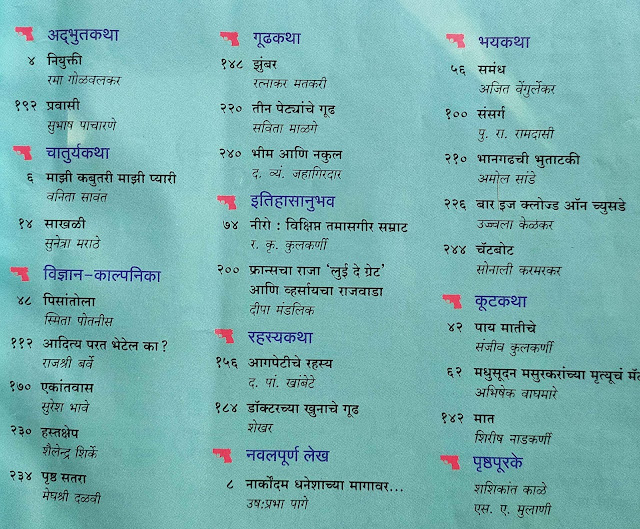 अद्भुतकथा
४ नियुक्ती
रमा गोळवलकर
१९२ प्रवासी
सुभाष पाचारणे
चातुर्यकथा
६ माझी कबुतरी माझी प्यारी
वनिता सावंत
१४ साखळी
सुनेत्रा मराठे
विज्ञान-काल्पनिका
४८ पिसांतोला
स्मिता पोतनीस
११२ आदित्य परत भेटेल का?
राजश्री बर्वे
१७० एकांतवास
सुरेश भावे
२३० हस्तक्षेप
शैलेन्द्र शिर्के
२३४ पृष्ठ सतरा
मेघश्री दळवी
गूढकथा
१४८ झुंबर
रत्नाकर मतकरी
२२० तीन पेट्यांचे गूढ
सविता माळगे
२४० भीम आणि नकुल
द. व्यं. जहागिरदार
इतिहासानुभव
७४ नीरो : विक्षिप्त तमासगीर सम्राट
र. कृ. कुलकर्णी
२०० फ्रान्सचा राजा ‘लुई दे ग्रेट’
आणि व्हर्सायचा राजवाडा
दीपा मंडलिक
रहस्यकथा
१५६ आगपेटीचे रहस्य
द. पां. खांबेटे
१८४ डॉक्टरच्या खुनाचे गूढ
शेखर
नवलपूर्ण लेख
८ नार्कोंदम धनेशाच्या मागावर...
उष:प्रभा पागे
भयकथा
५६ समंध
अजित वेंगुर्लेकर
१०० संसर्ग
पु. रा. रामदासी
२१० भानगढची भुताटकी
अमोल सांडे
२२६ बार इज क्लोज्ड ऑन च्युसडे
उज्ज्वला केळकर
२४४ चॅटबोट
सोनाली करमरकर
कूटकथा
४२ पाय मातीचे
संजीव कुलकर्णी
६२ मधुसूदन मसुरकरांच्या मृत्यूचं
अभिषेक वाघमारे
१४२ मात
शिरीष नाडकर्णी
पृष्ठपूरके
शशिकांत काळे
एस. ए. मुलाणी